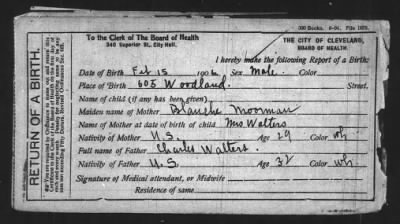 300 Books.
To the Clerk of The Board of Health
340 Superior St., City Hall.
THE CITY OF CLEVELAND,
BOARD OF HEALTH.
I hereby make the following Report of a Birth:
RETURN OF A BIRTH.
Date of Birth Feb 15 190 Sex Male Color
Place of Birth 603 Woodland Street.
Name of child (if any has been given)
Maiden name of Mother Blanche Moorman
Name of Mother at date of birth of child Mrs Walters
Nativity of Mother U.S. Age 29 Color Wh
Full name of Father Charles Walters
Nativity of Father U.S. Age 32 Color Wh
Signature of Medical attendant, or Midwife
Residence of same